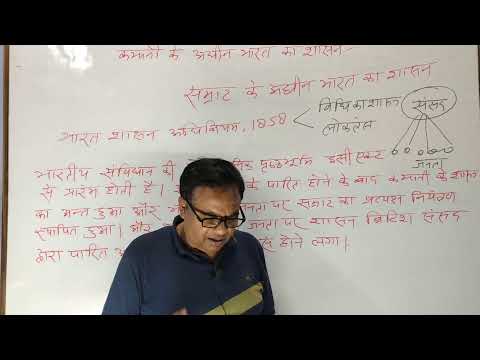 कम्पनी के अधीन भारत का शासन-
सम्राट के अधीन भारत का शासन
भारत शासन अधिनियम, 1858
विधि का शासन
लोकतंत्र
संसद
जनता
भारतीय संविधान की पृष्ठभूमि इसी एक्ट
से प्रारंभ होती है। के पारित होने के बाद कम्पनी के शासन
का अन्त हुआ और जनता पर सम्राट का प्रत्यक्ष नियंत्रण
स्थापित हुआ। और जनता पर शासन ब्रिटिश संसद
द्वारा पारित होने लगा।